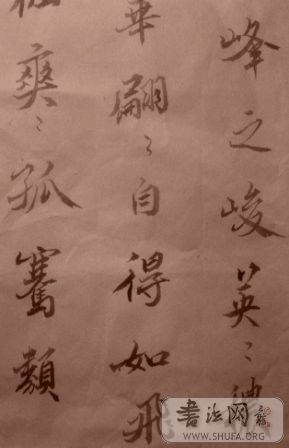 峰之峻英〻
華翩〻自得如飛
爽〻孤騫類
書法网
WWW.SHUFA.ORG